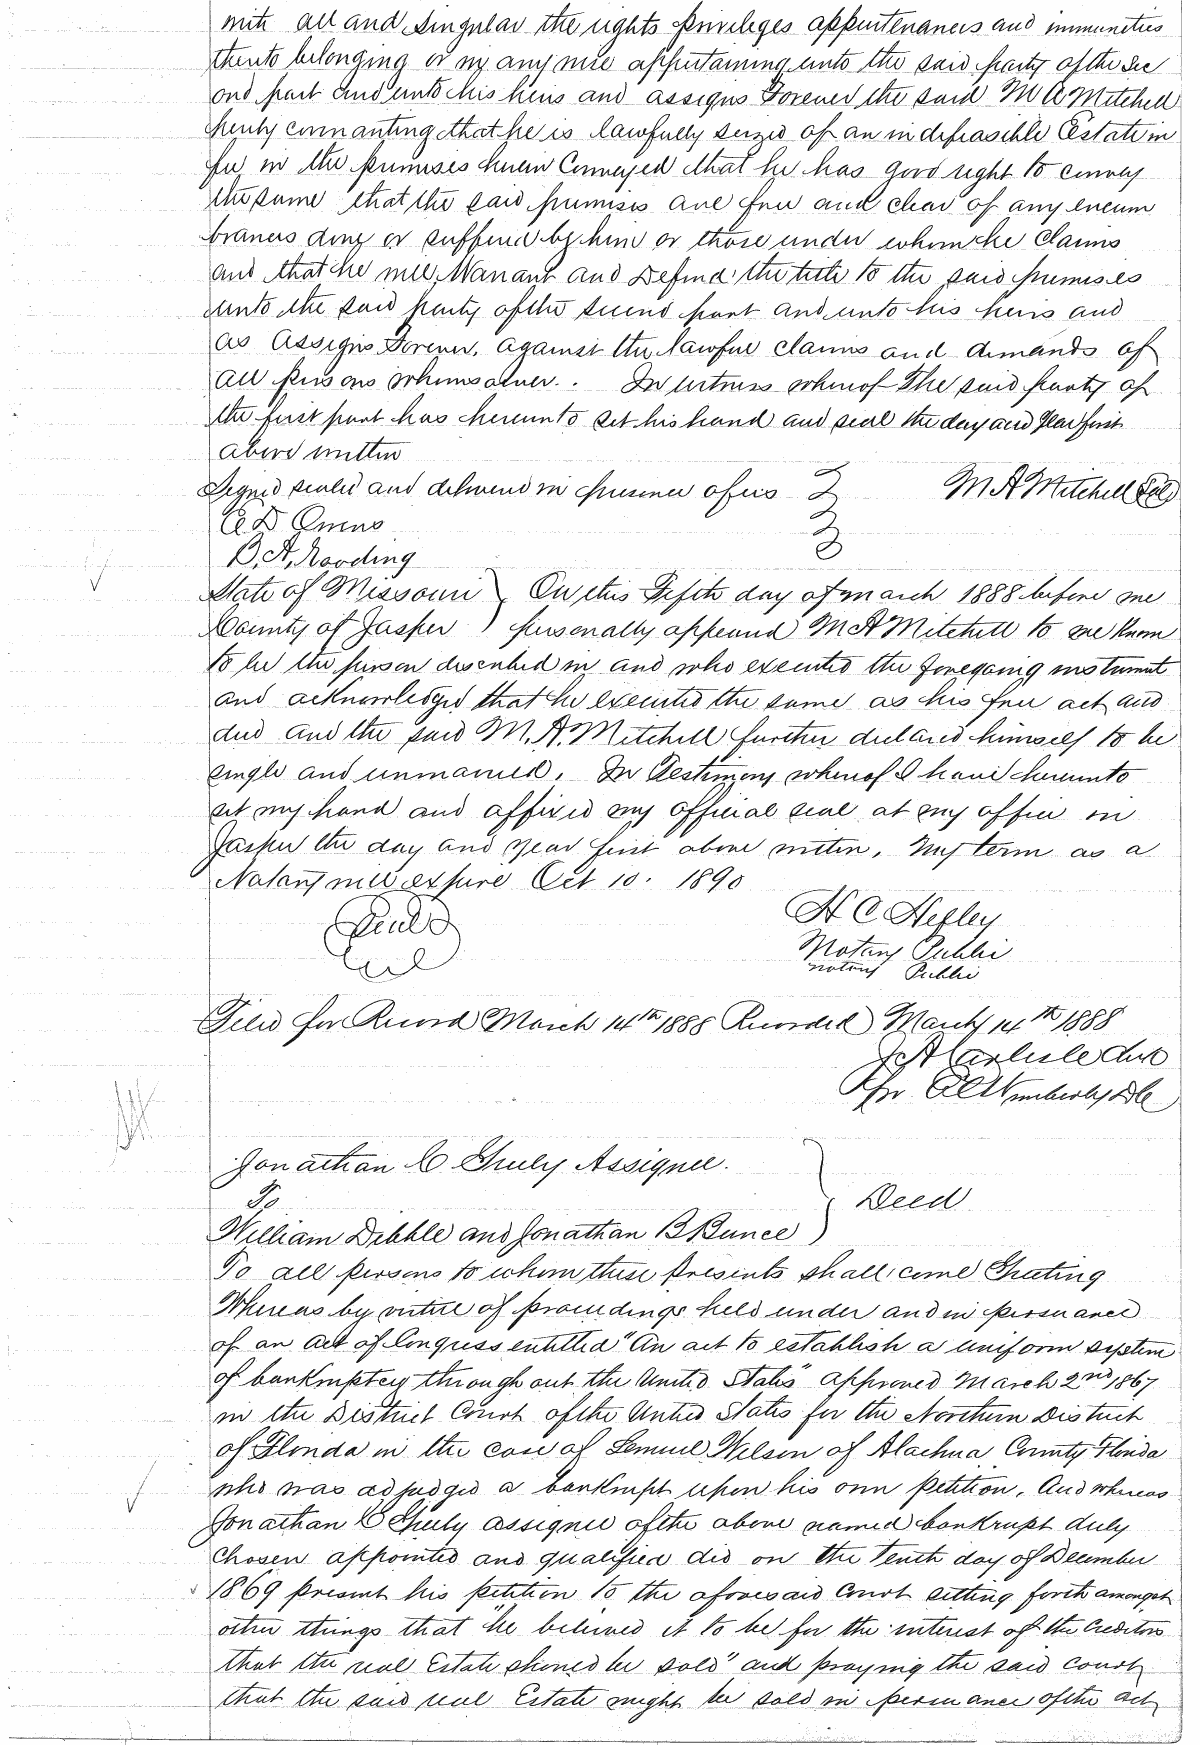 with all and singular the rights privileges appurtenances and immunities
thento belonging or in any wise appertaining unto the said party of the sec
ond part and unto his heirs and assigns Forever the said M A Mitchell
hereby covenanting that he is lawfully seized of an indefeasible Estate in
fee in the premises herein Conveyed that he has good right to convey
the same that the said premises are free and clear of any encum
brances done or suffered by him or those under whom he Claims
and that he will Warrant and Defend the title to the said premises
unto the said party of the second part and unto his heirs and
as Assigns Forever, against the lawful claims and demands of
all persons whomsoever. In witness whereof The said party of
the first part has hereunto set his hand and seal the day and year first
above written
Signed sealed and delivered in presence of us M A Mitchell Seal
A D Owens
B. A. Nooding
State of Missouri On this Fifth day of march 1888 before me
County of Jasper personally appeared M A Mitchell to me known
to be the person described in and who executed the foregoing instrument
and acknowledged that he executed the same as his free act and
deed and the said M. A. Mitchell further declared himself to be
single and unmarried. In Testimony whereof I have hereunto
set my hand and affixed my official seal at my office in
Jasper the day and year first above written. My term as a
Notary will expire Oct 10. 1890
Seal H C Hefley
Seal Notary Public
notary Public
Filed for Record March 14th 1888 Recorded March 14th 1888
J A Carlisle Clerk
Per Wimberly D C
Jonathan C Gruly Assignee.
To Deed
William Dibble and Jonathan B Bunce
To all persons to whom these presents shall come Greating
Whereas by virtue of proceedings held under and in persuance
of an act of Congress entitled "An act to establish a uniform system
of bankruptcy throughout the United States" approved March 2nd 1867
in the District Court of the United States for the Northern District
of Florida in the case of Lemuel Wilson of Alachua County Florida
who was adjudged a bankrupt upon his own petition. And whereas
Jonathan C Gruly assignee of the above named bankrupt duly
chosen appointed and qualified did on the Tenth day of December
1869 present his petition to the aforesaid Court setting forth amongst
other things that "he believed it to be for the interest of the Creditors
that the real Estate should be sold" and praying the said court
that the said real Estate might be sold in persuance of the act